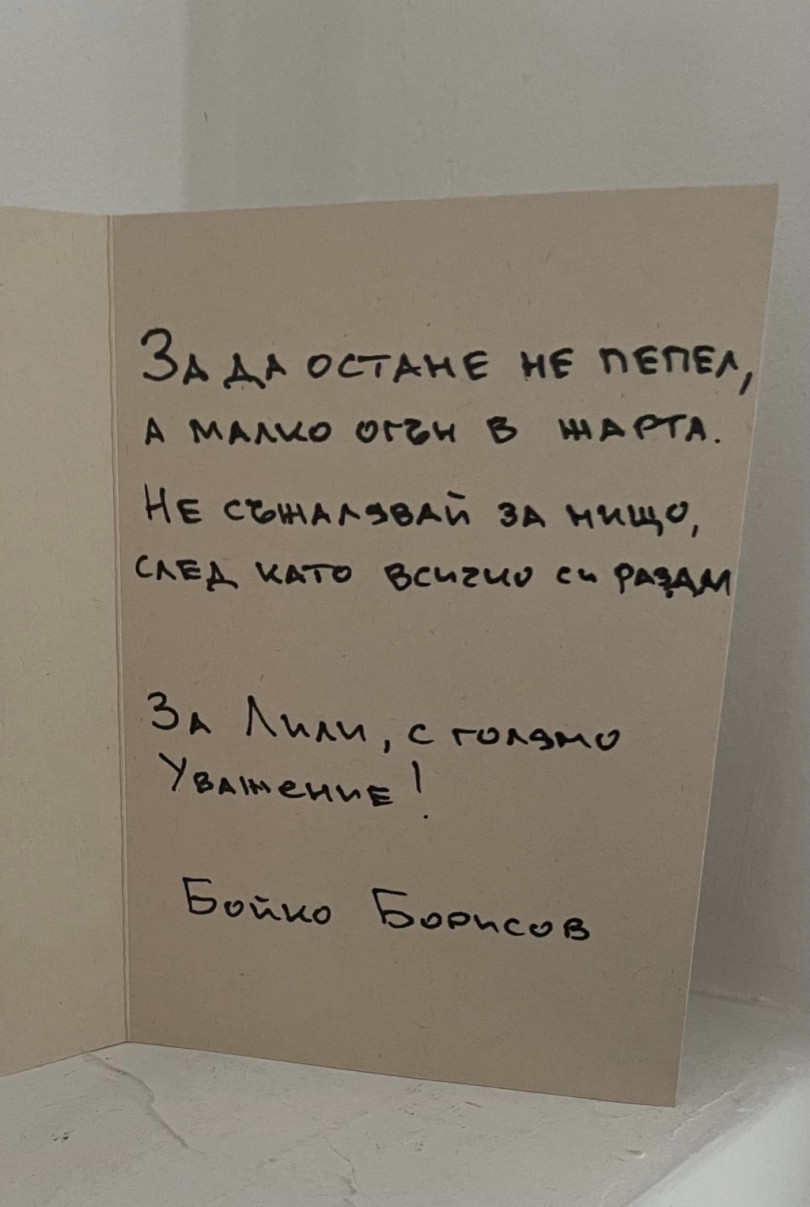 За да остане не пепел,
а малко огън в жарта.
Не съжалявай за нищо,
след като всичко си раздал
За Лили, с голямо
Уважение!
Бойко Борисов